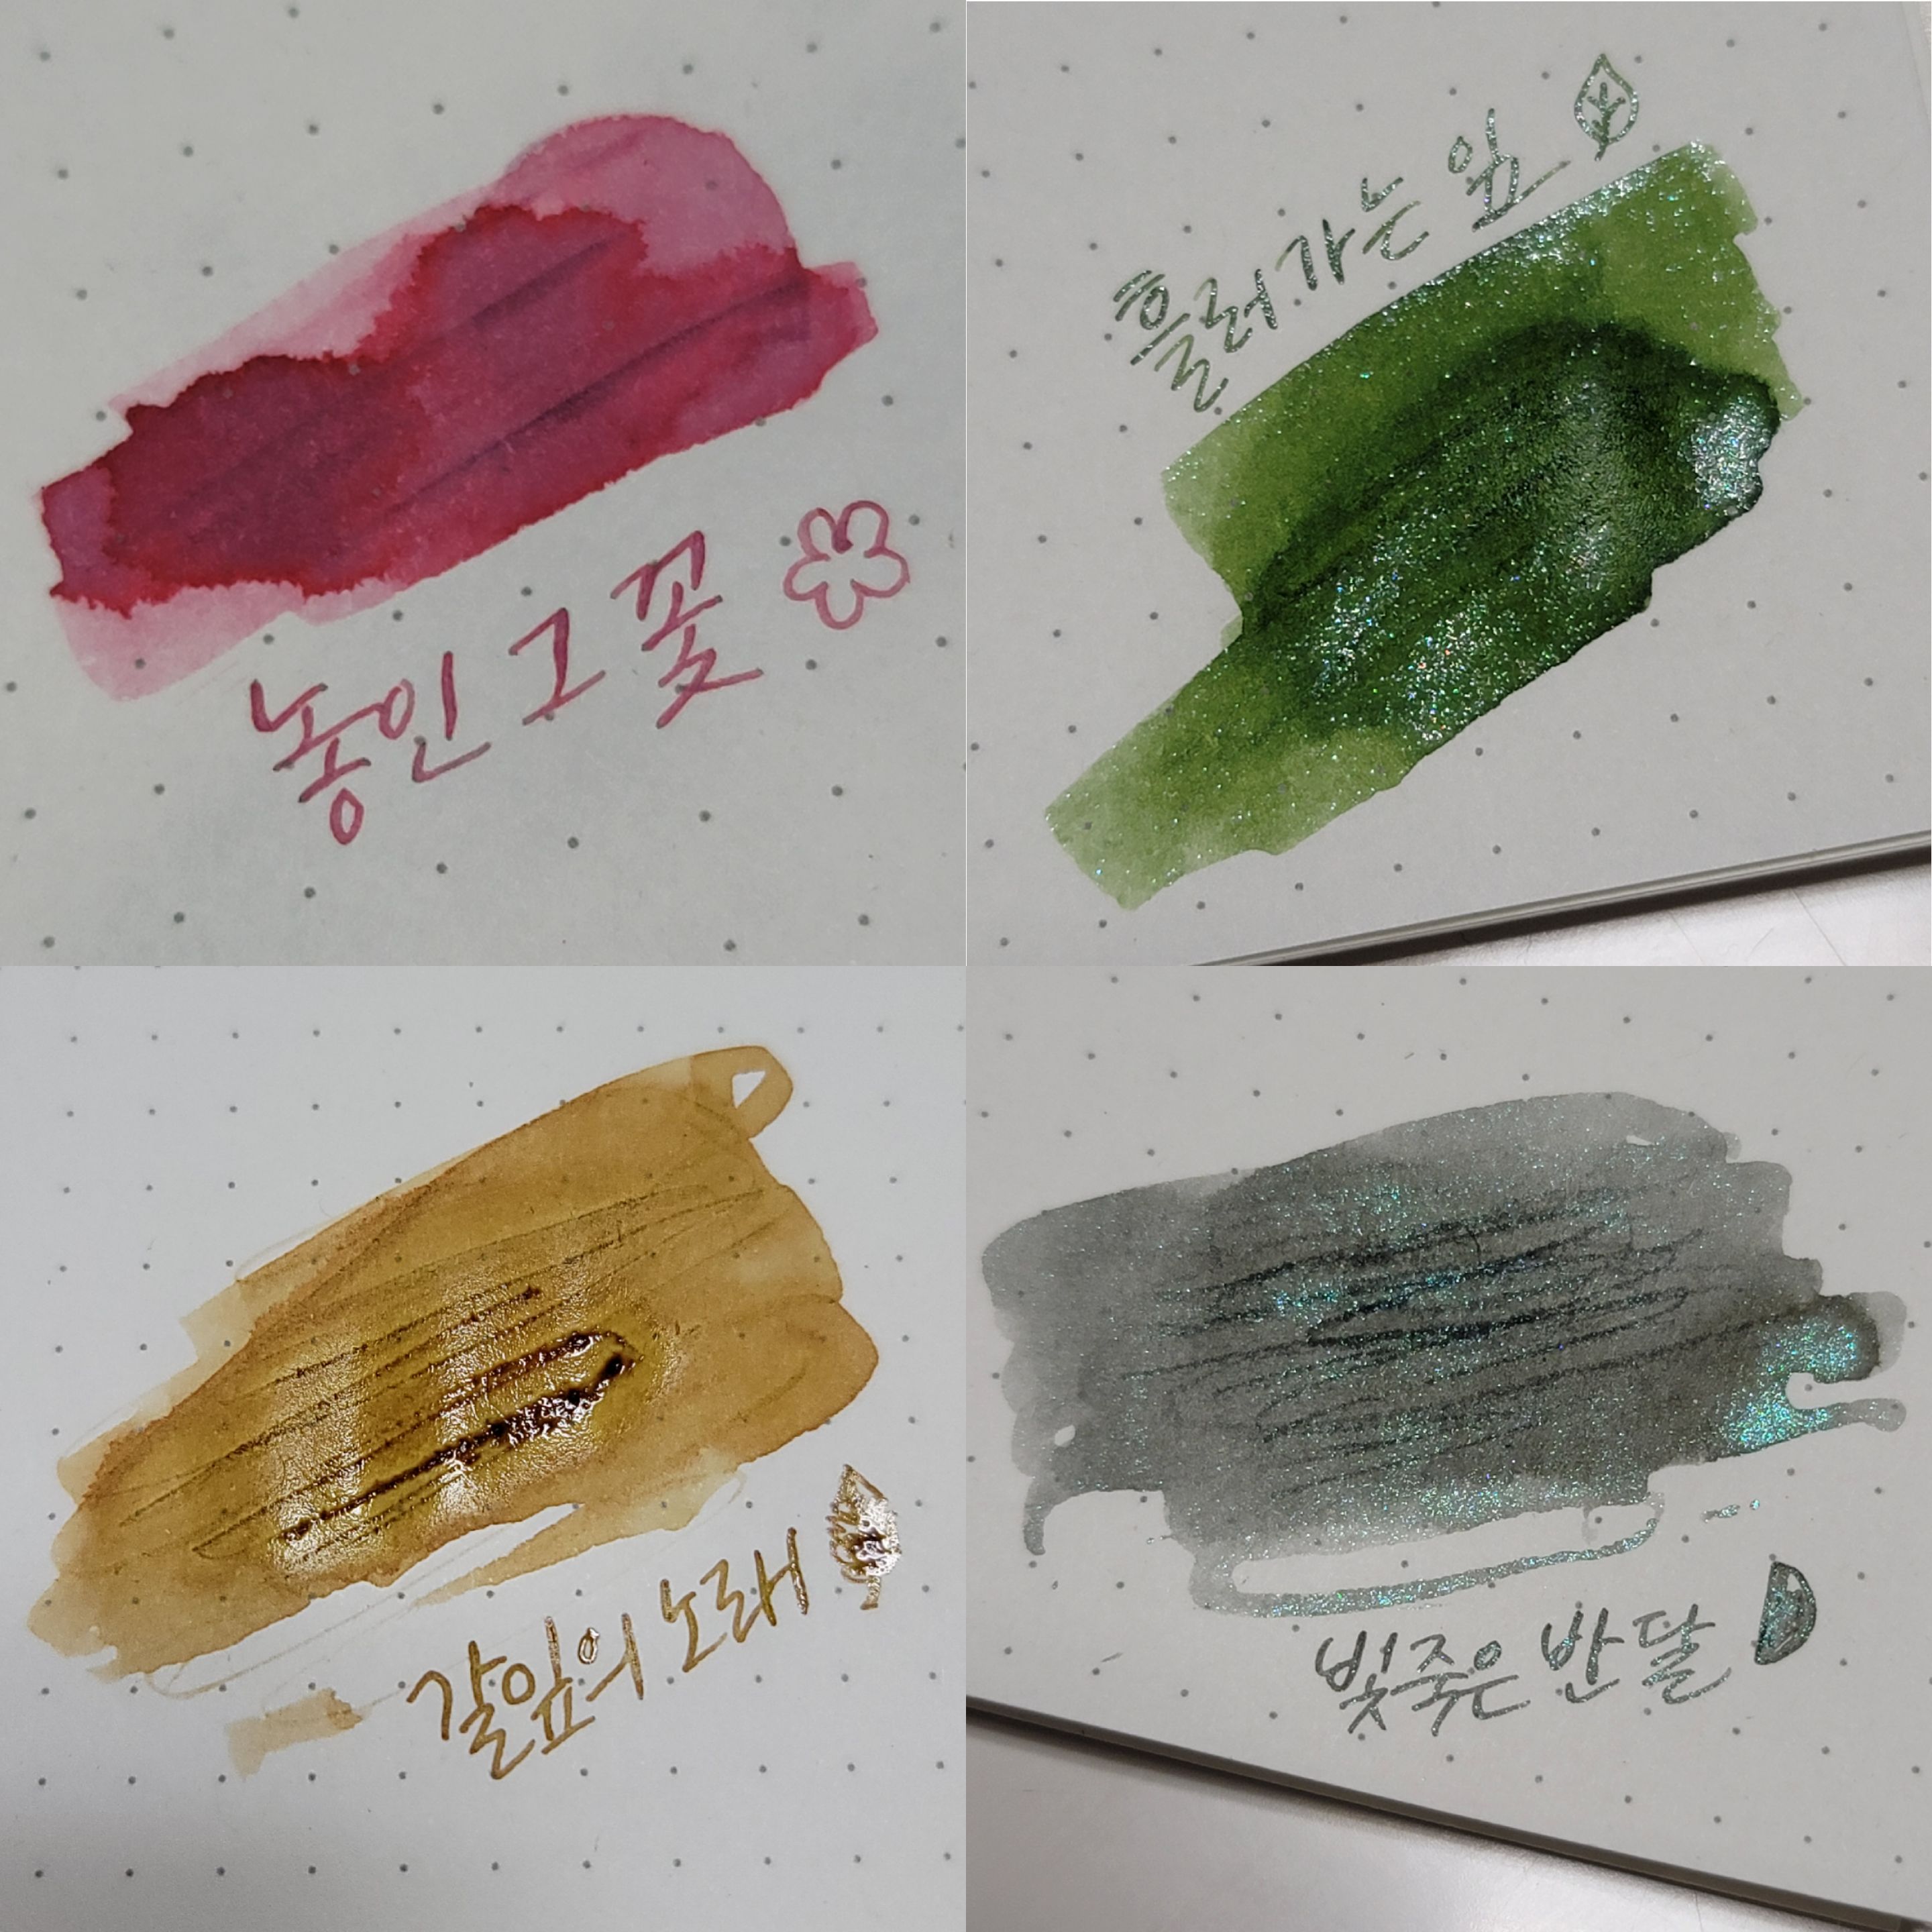 농인 그 꽃
흘러가는 잎
갈잎의 노래
빛죽은 반달